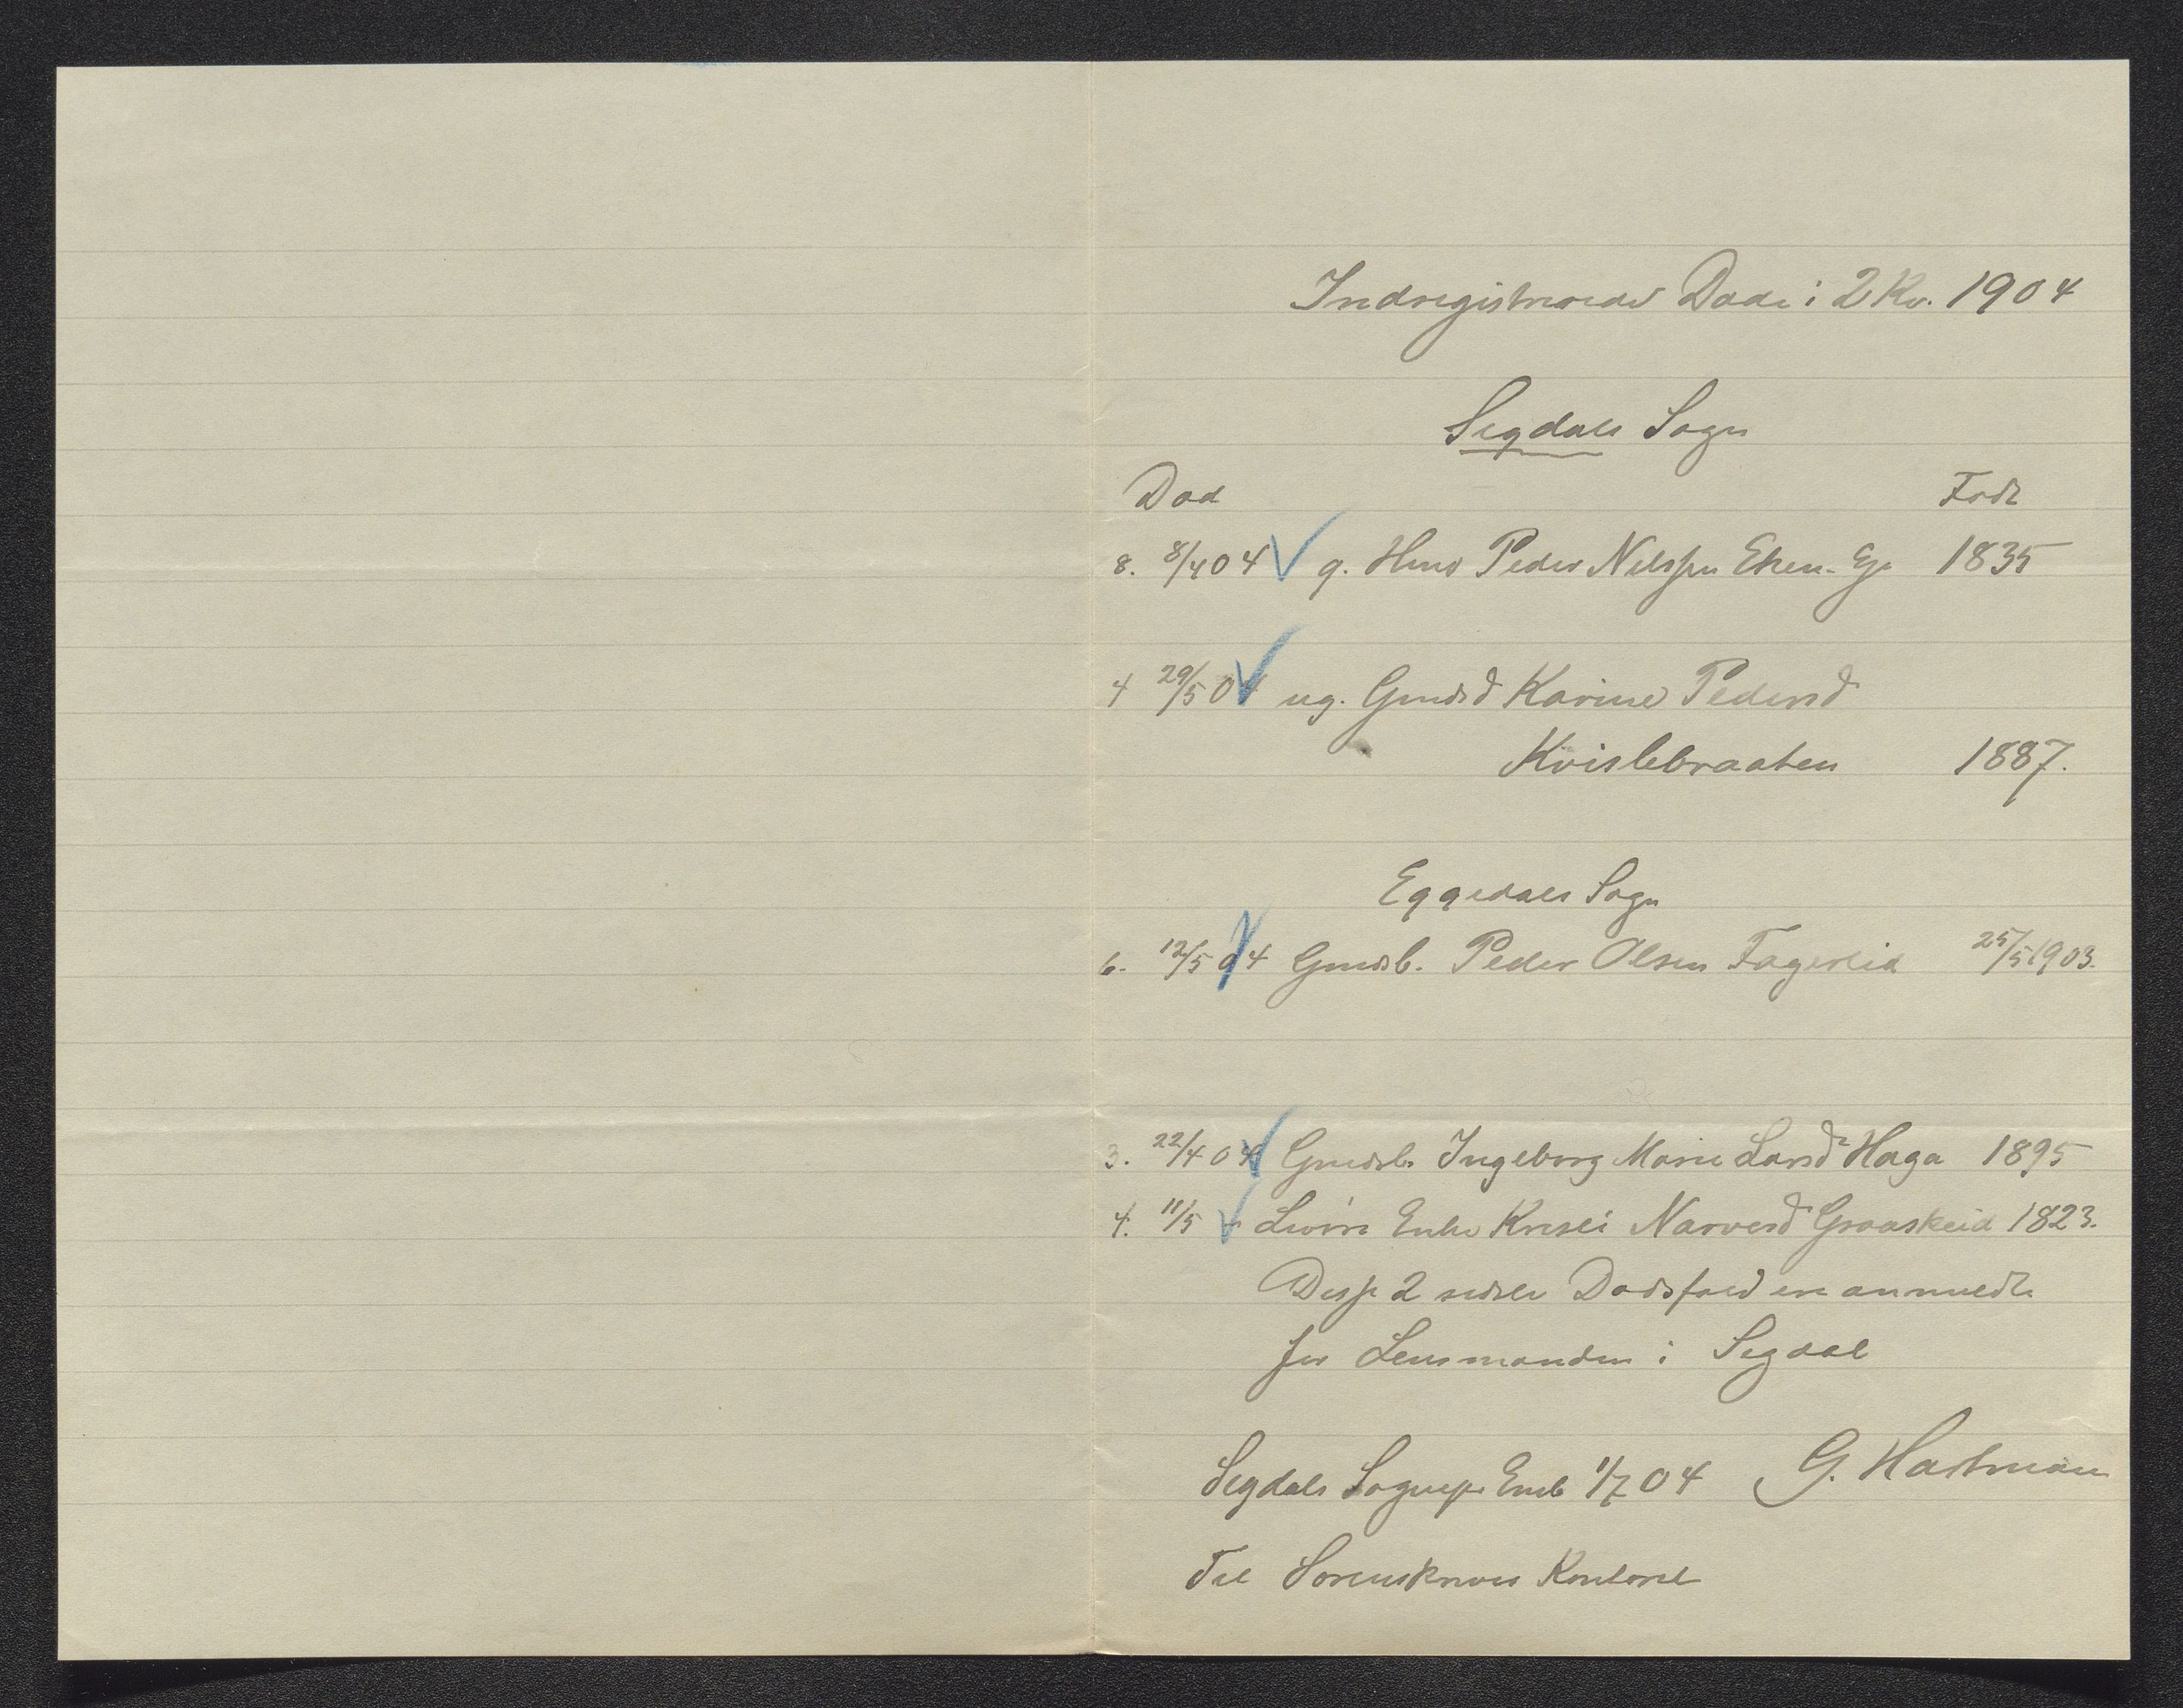 Indregistrerede Døde i 2 Kv. 1904
Sigdals Sogn
Død Født
8. 8/4 04 g. Hmd Peder Nilssen Eken-Eje 1835
4 29/5 04 ug. Gmdsd Karine Pedersd
Kvislebraaten 1887.
Eggedals Sogn
6. 12/5 04 Gmdsb. Peder Olsen Fagerlid 25/5 1903.
3. 22/4 04 Gmdsb. Ingeborg Marie Larsd Haga 1895
4. 11/5 - Enke Kirsti Narvesd Graaskeid 1823.
Disse 2 sidste Dødsfald ere anmeldte
for Lensmanden i Sigdal
Sigdals Sognepr. Emb 1/7 04 G. Hartman
Til Sorenskriver Kontoret